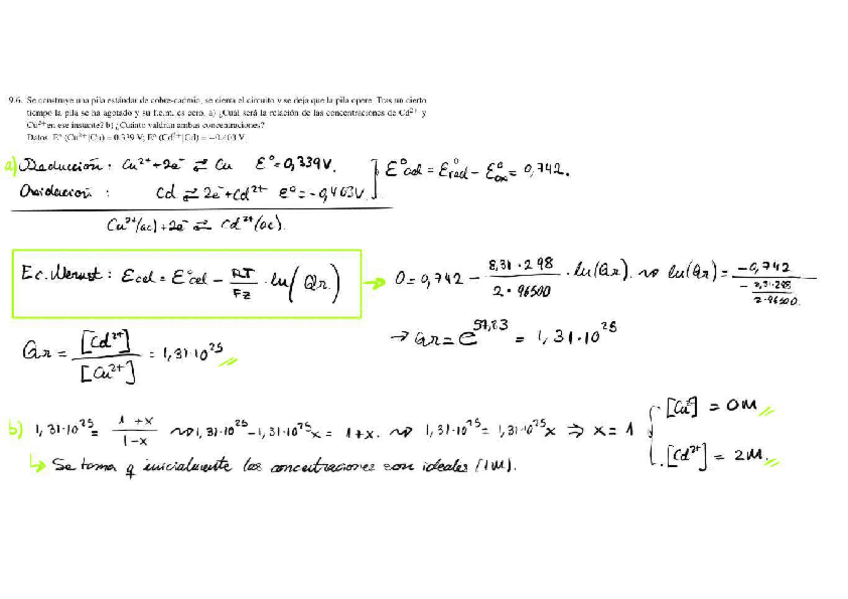 9.6. Se construye una pila estándar de cobre-cadmio, se cierra el circuito y se deja que la pila opere. Tras un cierto
tiempo la pila se ha agotado y su f.e.m. es cero. a) ¿Cuál será la relación de las concentraciones de Cd²⁺ y
Cu²⁺ en ese instante? b) ¿Cuánto valdrán ambas concentraciones?
Datos: E° (Cu²⁺|Cu) = 0.339 V; E° (Cd²⁺|Cd) = −0.403 V.
a) Reducción: Cu²⁺ + 2e⁻ ⇄ Cu E° = 0,339 V. E°cel = E°red − E°ox = 0,742.
Oxidación: Cd ⇄ 2e⁻ + Cd²⁺ E° = −0,403 V
Cu²⁺(ac) + 2e⁻ ⇄ Cd²⁺(ac).
Ec. Nernst: Ecel = E°cel − RT/Fz · ln(Qr) → 0 = 0,742 − 8,31·298/2·96500 · ln(Qr). ⇝ ln(Qr) = −0,742/−8,31·298/2·96500.
→ Qr = e^57,83 = 1,31·10²⁵
Qr = [Cd²⁺]/[Cu²⁺] = 1,31·10²⁵
b) 1,31·10²⁵ = 1+x/1−x ⇝ 1,31·10²⁵ − 1,31·10²⁵x = 1+x. ⇝ 1,31·10²⁵ = 1,31·10²⁵x ⇒ x = 1 [Cu²⁺] = 0M
[Cd²⁺] = 2M.
↳ Se toma q inicialmente las concentraciones son ideales (1M).